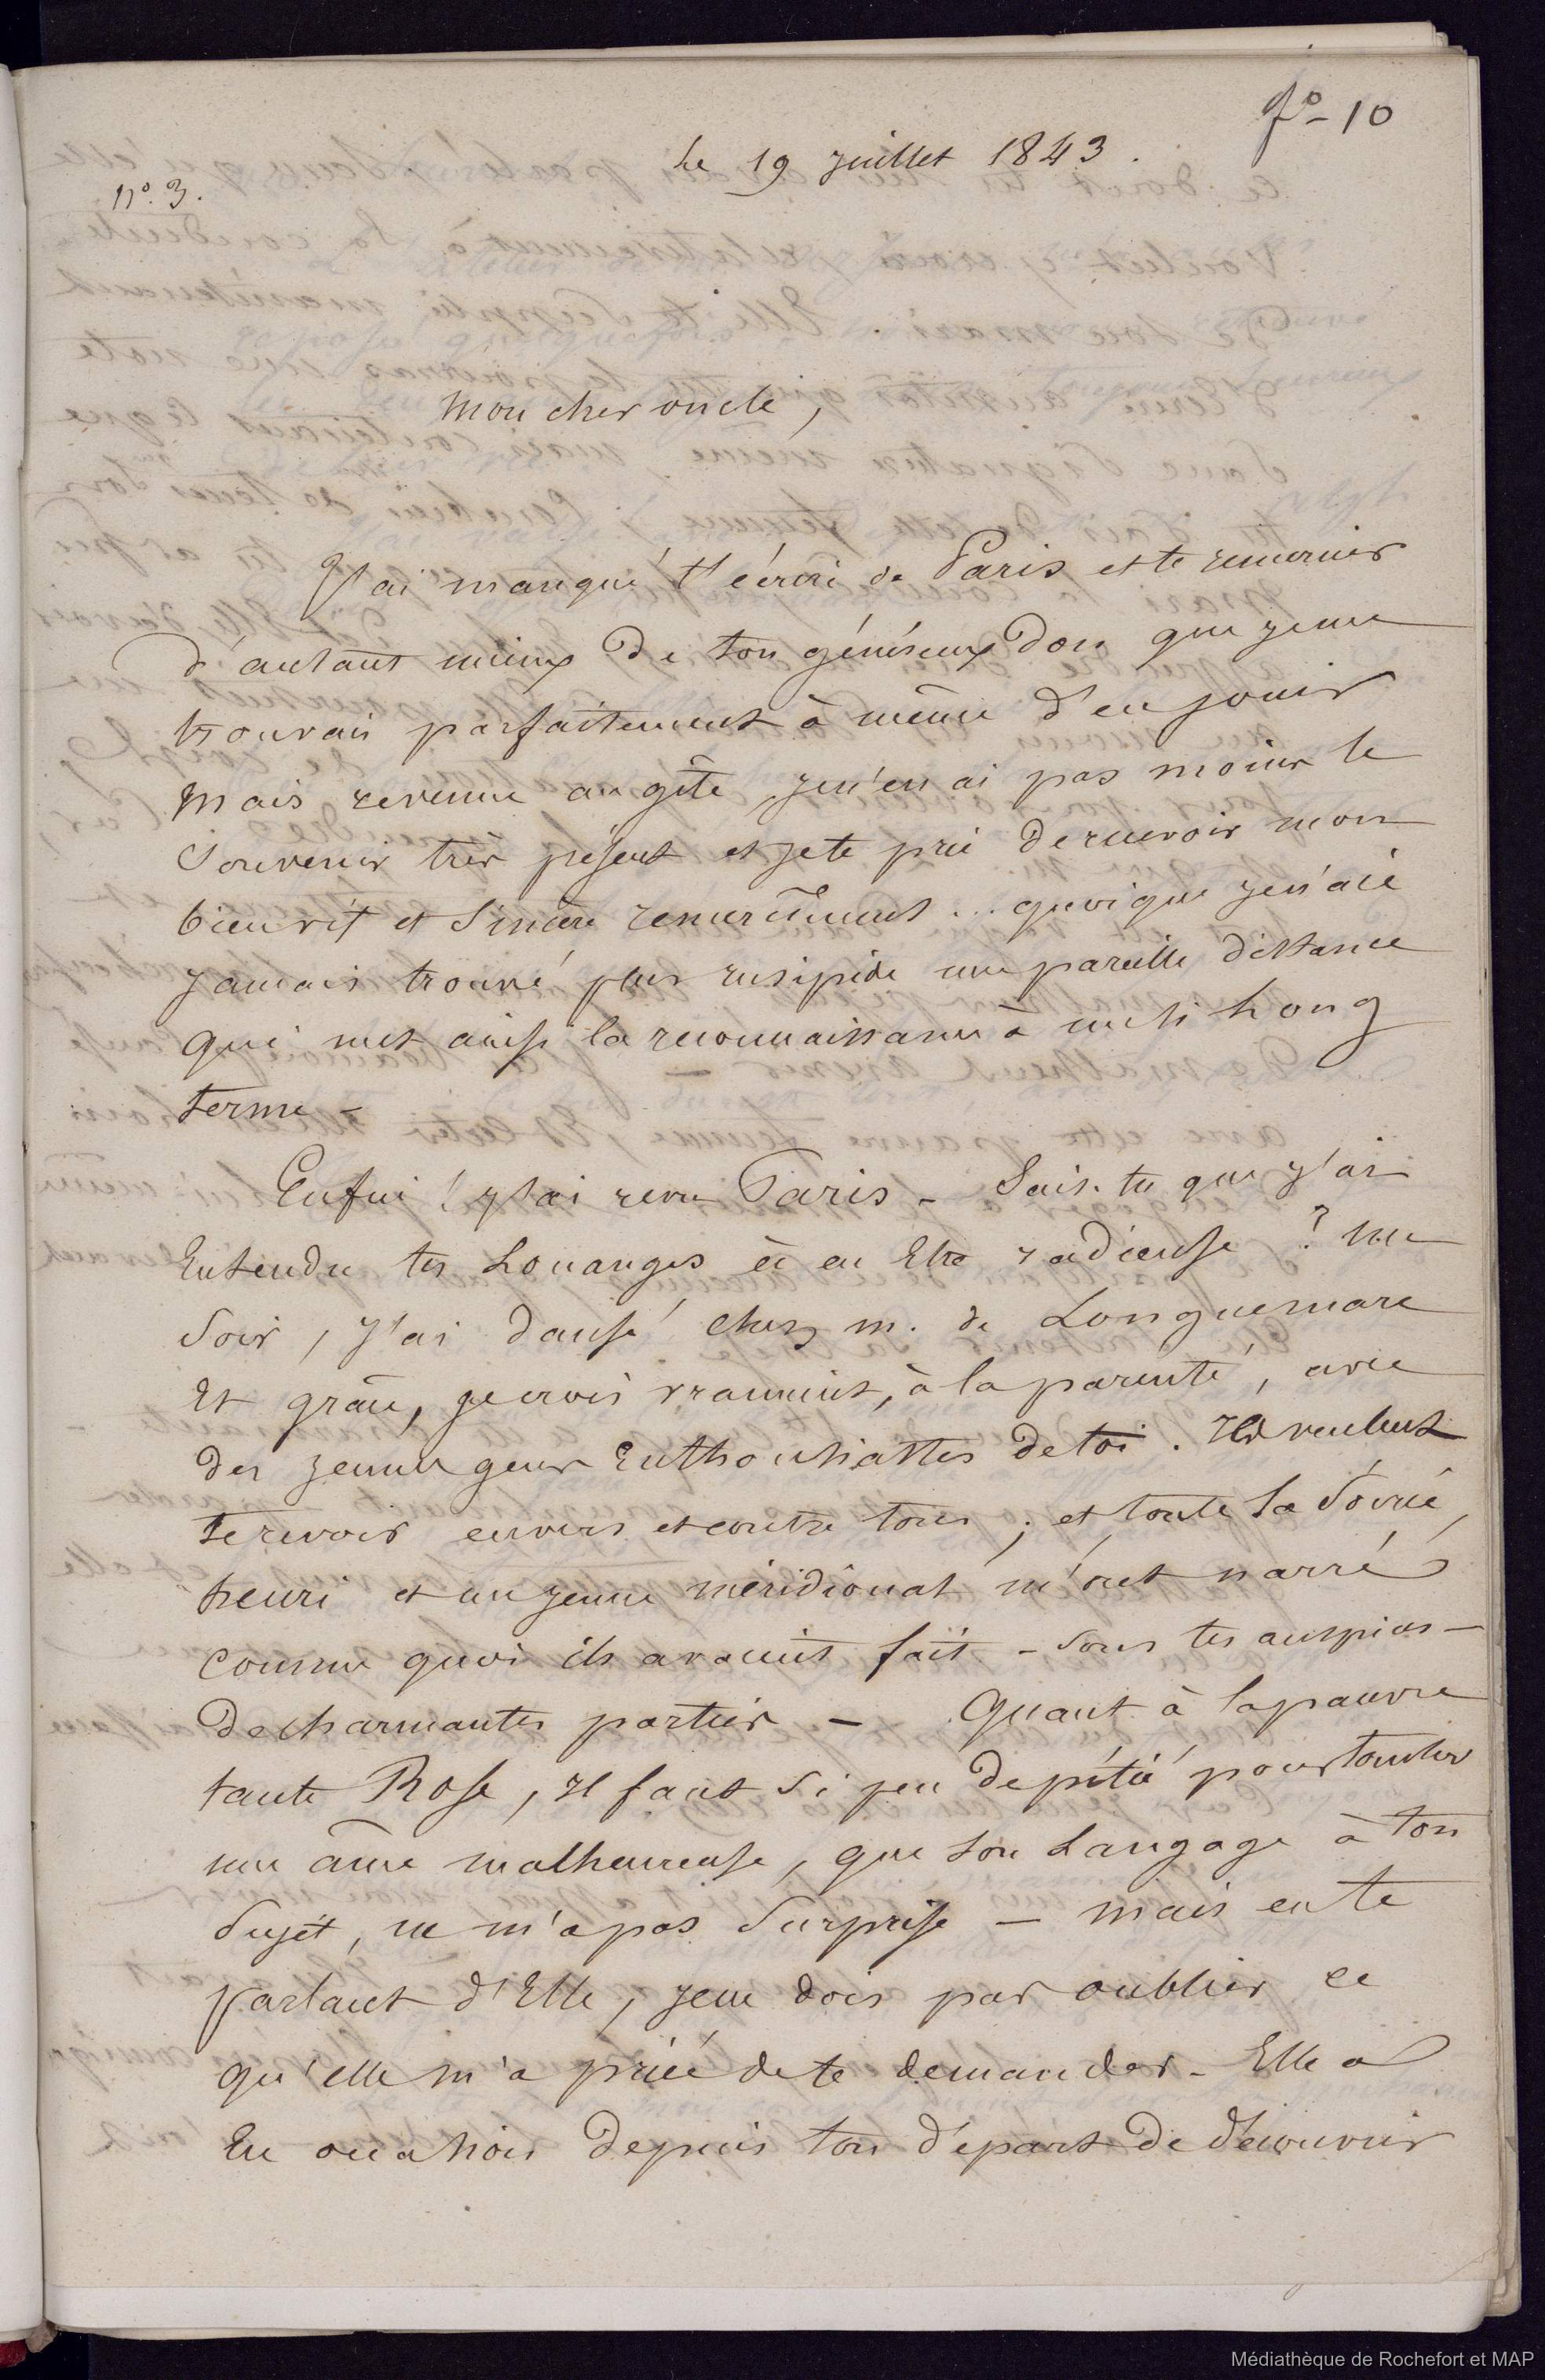 fo- 10
Le 19 juillet 1843.
no. 3.
Mon cher oncle,
J'ai manqué t'écrire de Paris et te remercier
d'autant mieux de ton généreux don que je me
trouvais parfaitement à même d'en jouir
mais revenue au gîte, je n'en ai pas moins le
souvenir très présent et je te prie de recevoir mon
bien vif et sincère remerciement... quoique je n'aie
jamais trouvé plus insipide une pareille distance
qui met ainsi la reconnaissance à un si long
terme -
Enfin ! j'ai revu Paris - Sais-tu que j'ai
Entendu tes Louanges à en Etre radieuse ? un
soir, j'ai dansé chez m. de Longuemare
Et grâce, je crois vraiment, à la parenté, avec
des jeunes gens Enthousiastes de toi. Ils veulent
te revoir envers et contre tous ; et toute la soirée,
henri et un jeune méridional m'ont narré
comme quoi ils avaient fait - sous tes auspices -
de charmantes parties - Quant à la pauvre
tante Rose, il faut si peu de pitié pour toucher
une âme malheureuse, que son Langage à ton
sujet, ne m'a pas surprise - mais en te
parlant d'Elle, je ne dois pas oublier ce
qu'elle m'a priée de te demander - Elle a
Eu occasion depuis ton départ de découvrir
Médiathèque de Rochefort et MAP